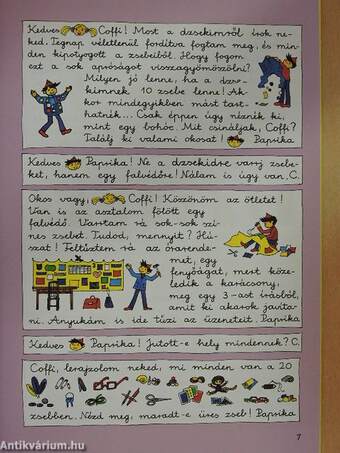 Kedves Coffi! Most a dzsekimről írok ne-
ked. Tegnap véletlenül fordítva fogtam meg, és min-
den kipotyogott a zsebeiből. Hogy fogom
ezt a sok apróságot visszagyömöszölni?
Milyen jó lenne, ha a dzse-
kimnek 10 zsebe lenne! Ak-
kor mindegyikben mást tart-
hatnék... Csak éppen úgy néznék ki,
mint egy bohóc. Mit csináljak, Coffi?
Találj ki valami okosat! Paprika
Kedves Paprika! Ne a dzsekidre varrj zsebe-
ket, hanem egy falvédőre! Nálam is úgy van. C.
Okos vagy, Coffi! Köszönöm az ötletet!
Van is az asztalom fölött egy
falvédő. Varrtam rá sok-sok szí-
nes zsebet. Tudod, mennyit? Hú-
szat! Feltűztem rá az órarende-
met, egy
fenyőágat, mert köze-
ledik a karácsony,
meg egy 3-ast írásból,
amit ki akarok javíta-
ni. Anyukám is ide tűzi az üzeneteit. Paprika
Kedves Paprika! Jutott-e hely mindennek? C.
Coffi, lerajzolom neked, mi minden van a 20
zsebben. Nézd meg, maradt-e üres zseb! Paprika
7
Antikvárium.hu